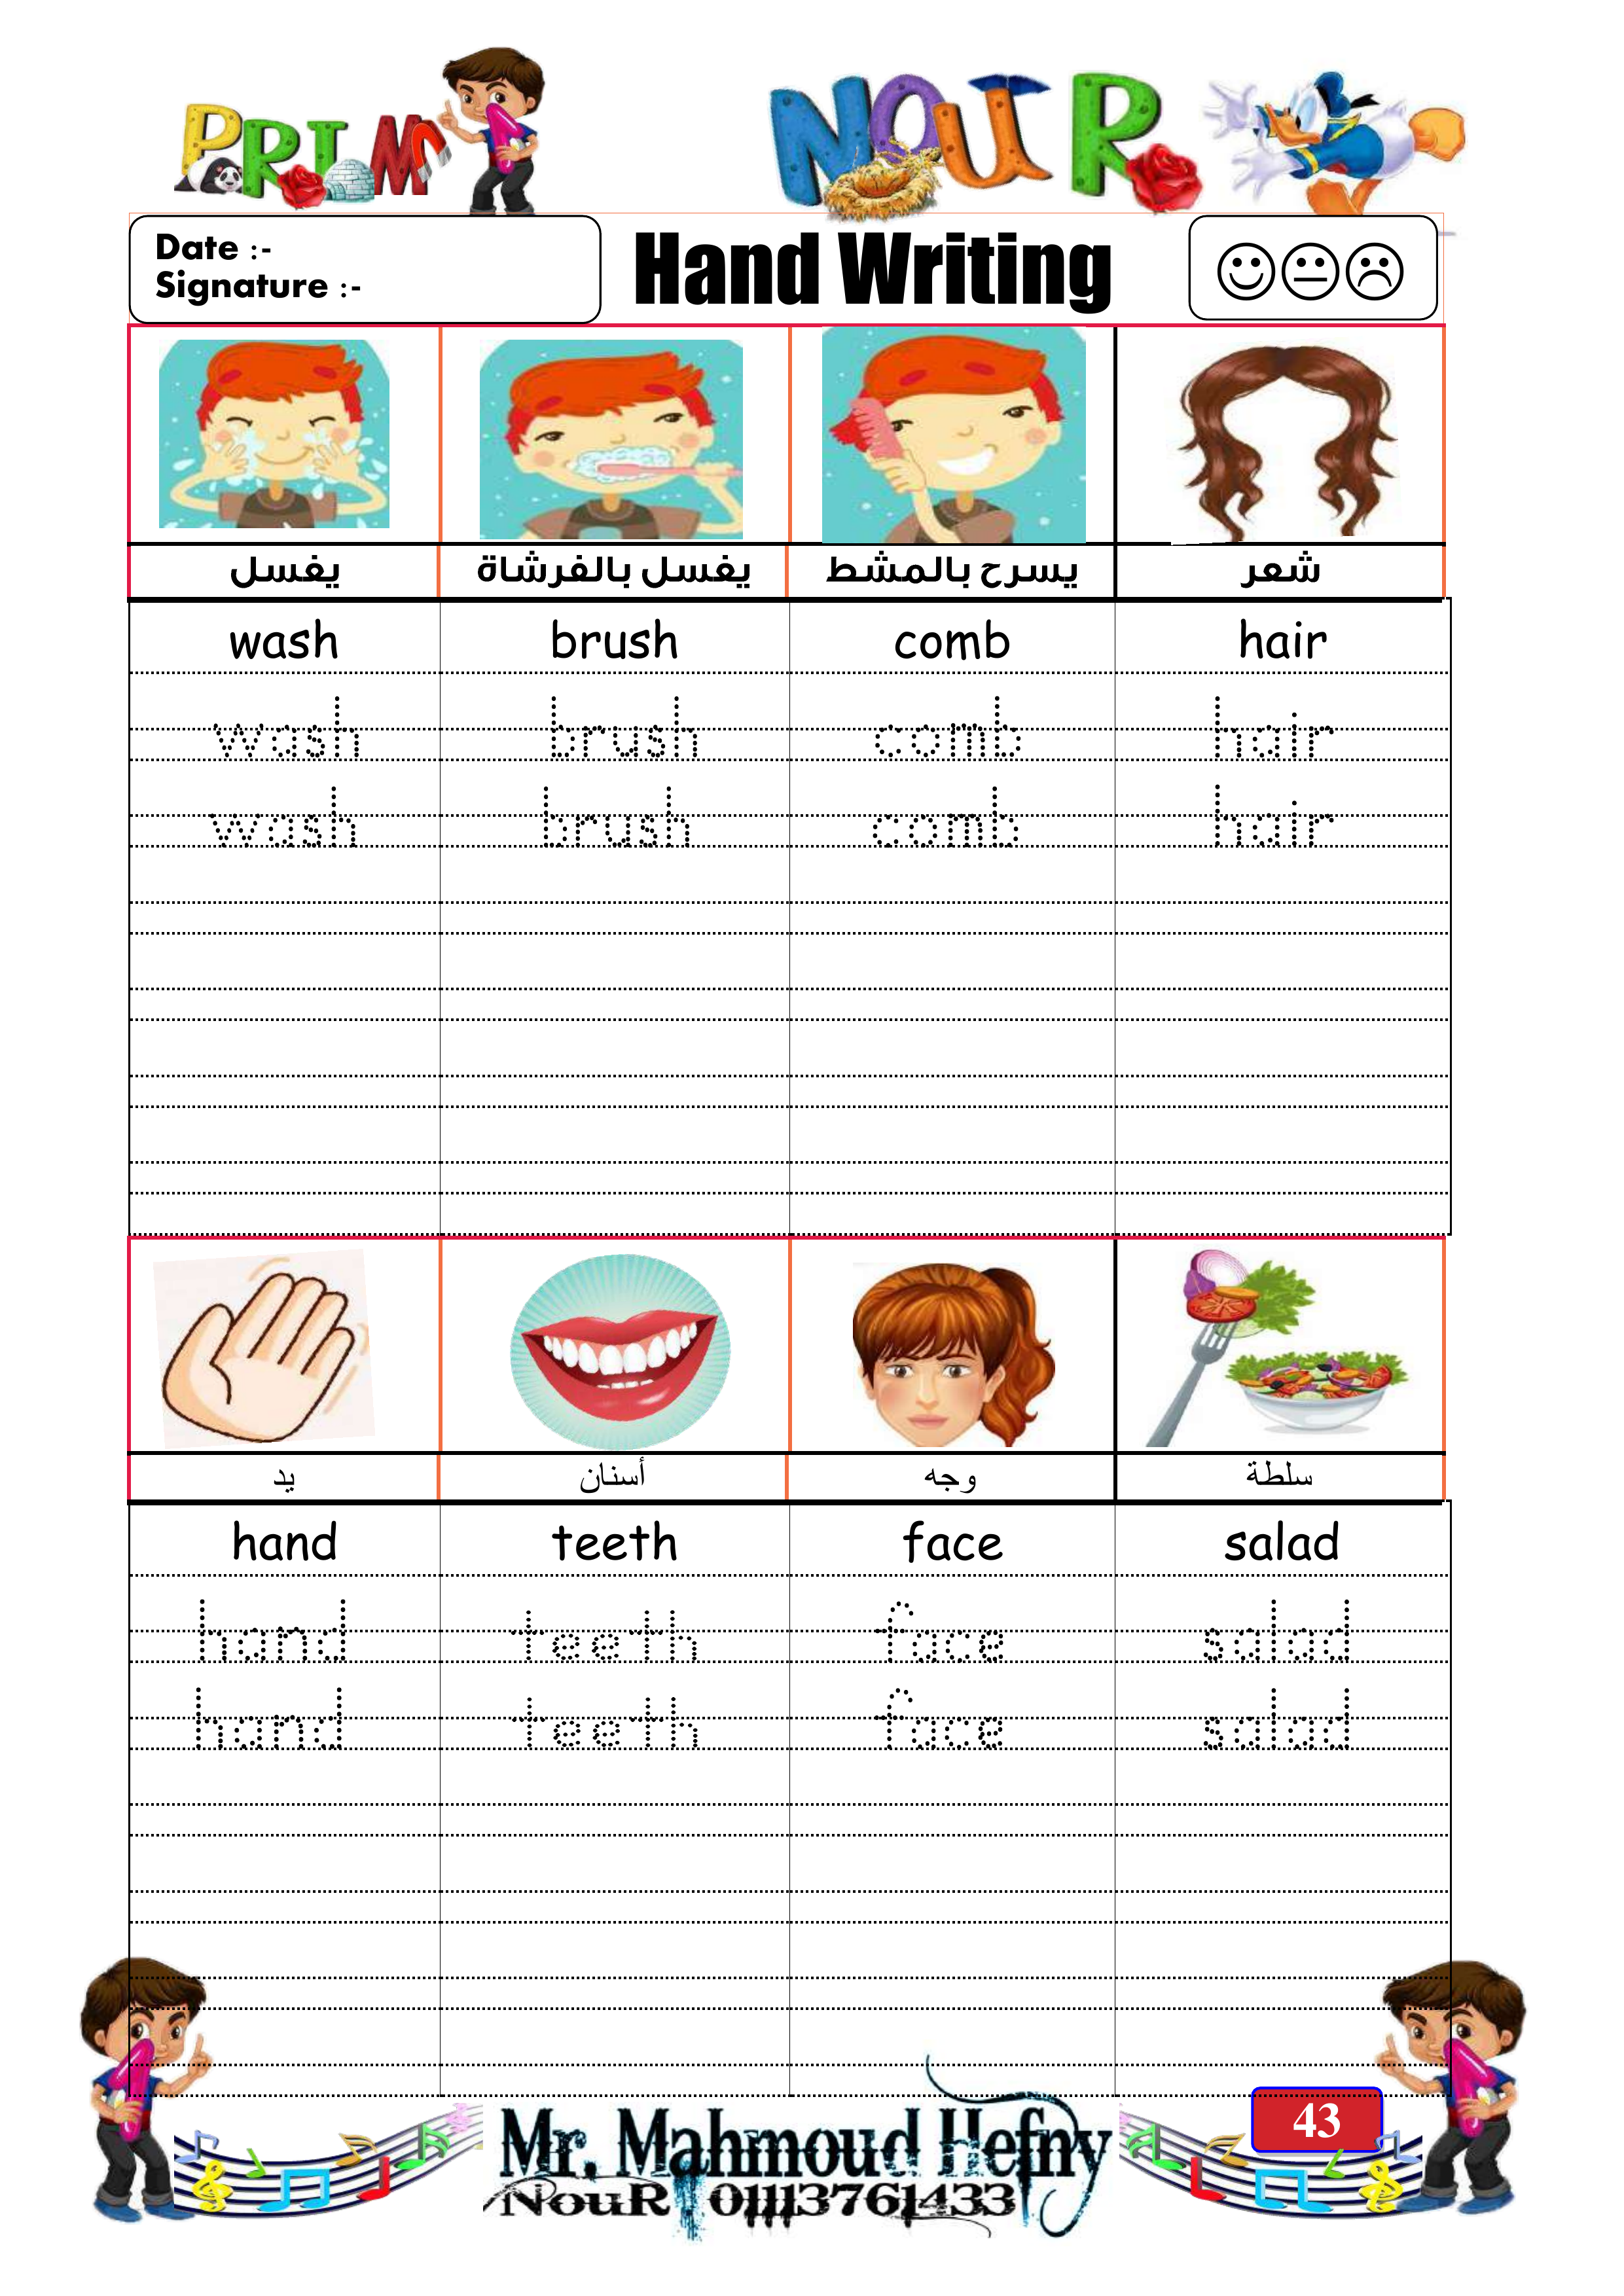 PRIM 1 NOUR
Date :-
Signature :-
Hand Writing
يغسل يغسل بالفرشاة يسرح بالمشط شعر
wash brush comb hair
wash brush comb hair
wash brush comb hair
يد أسنان وجه سلطة
hand teeth face salad
hand teeth face salad
hand teeth face salad
43
Mr. Mahmoud Hefny
NouR. 01113761433